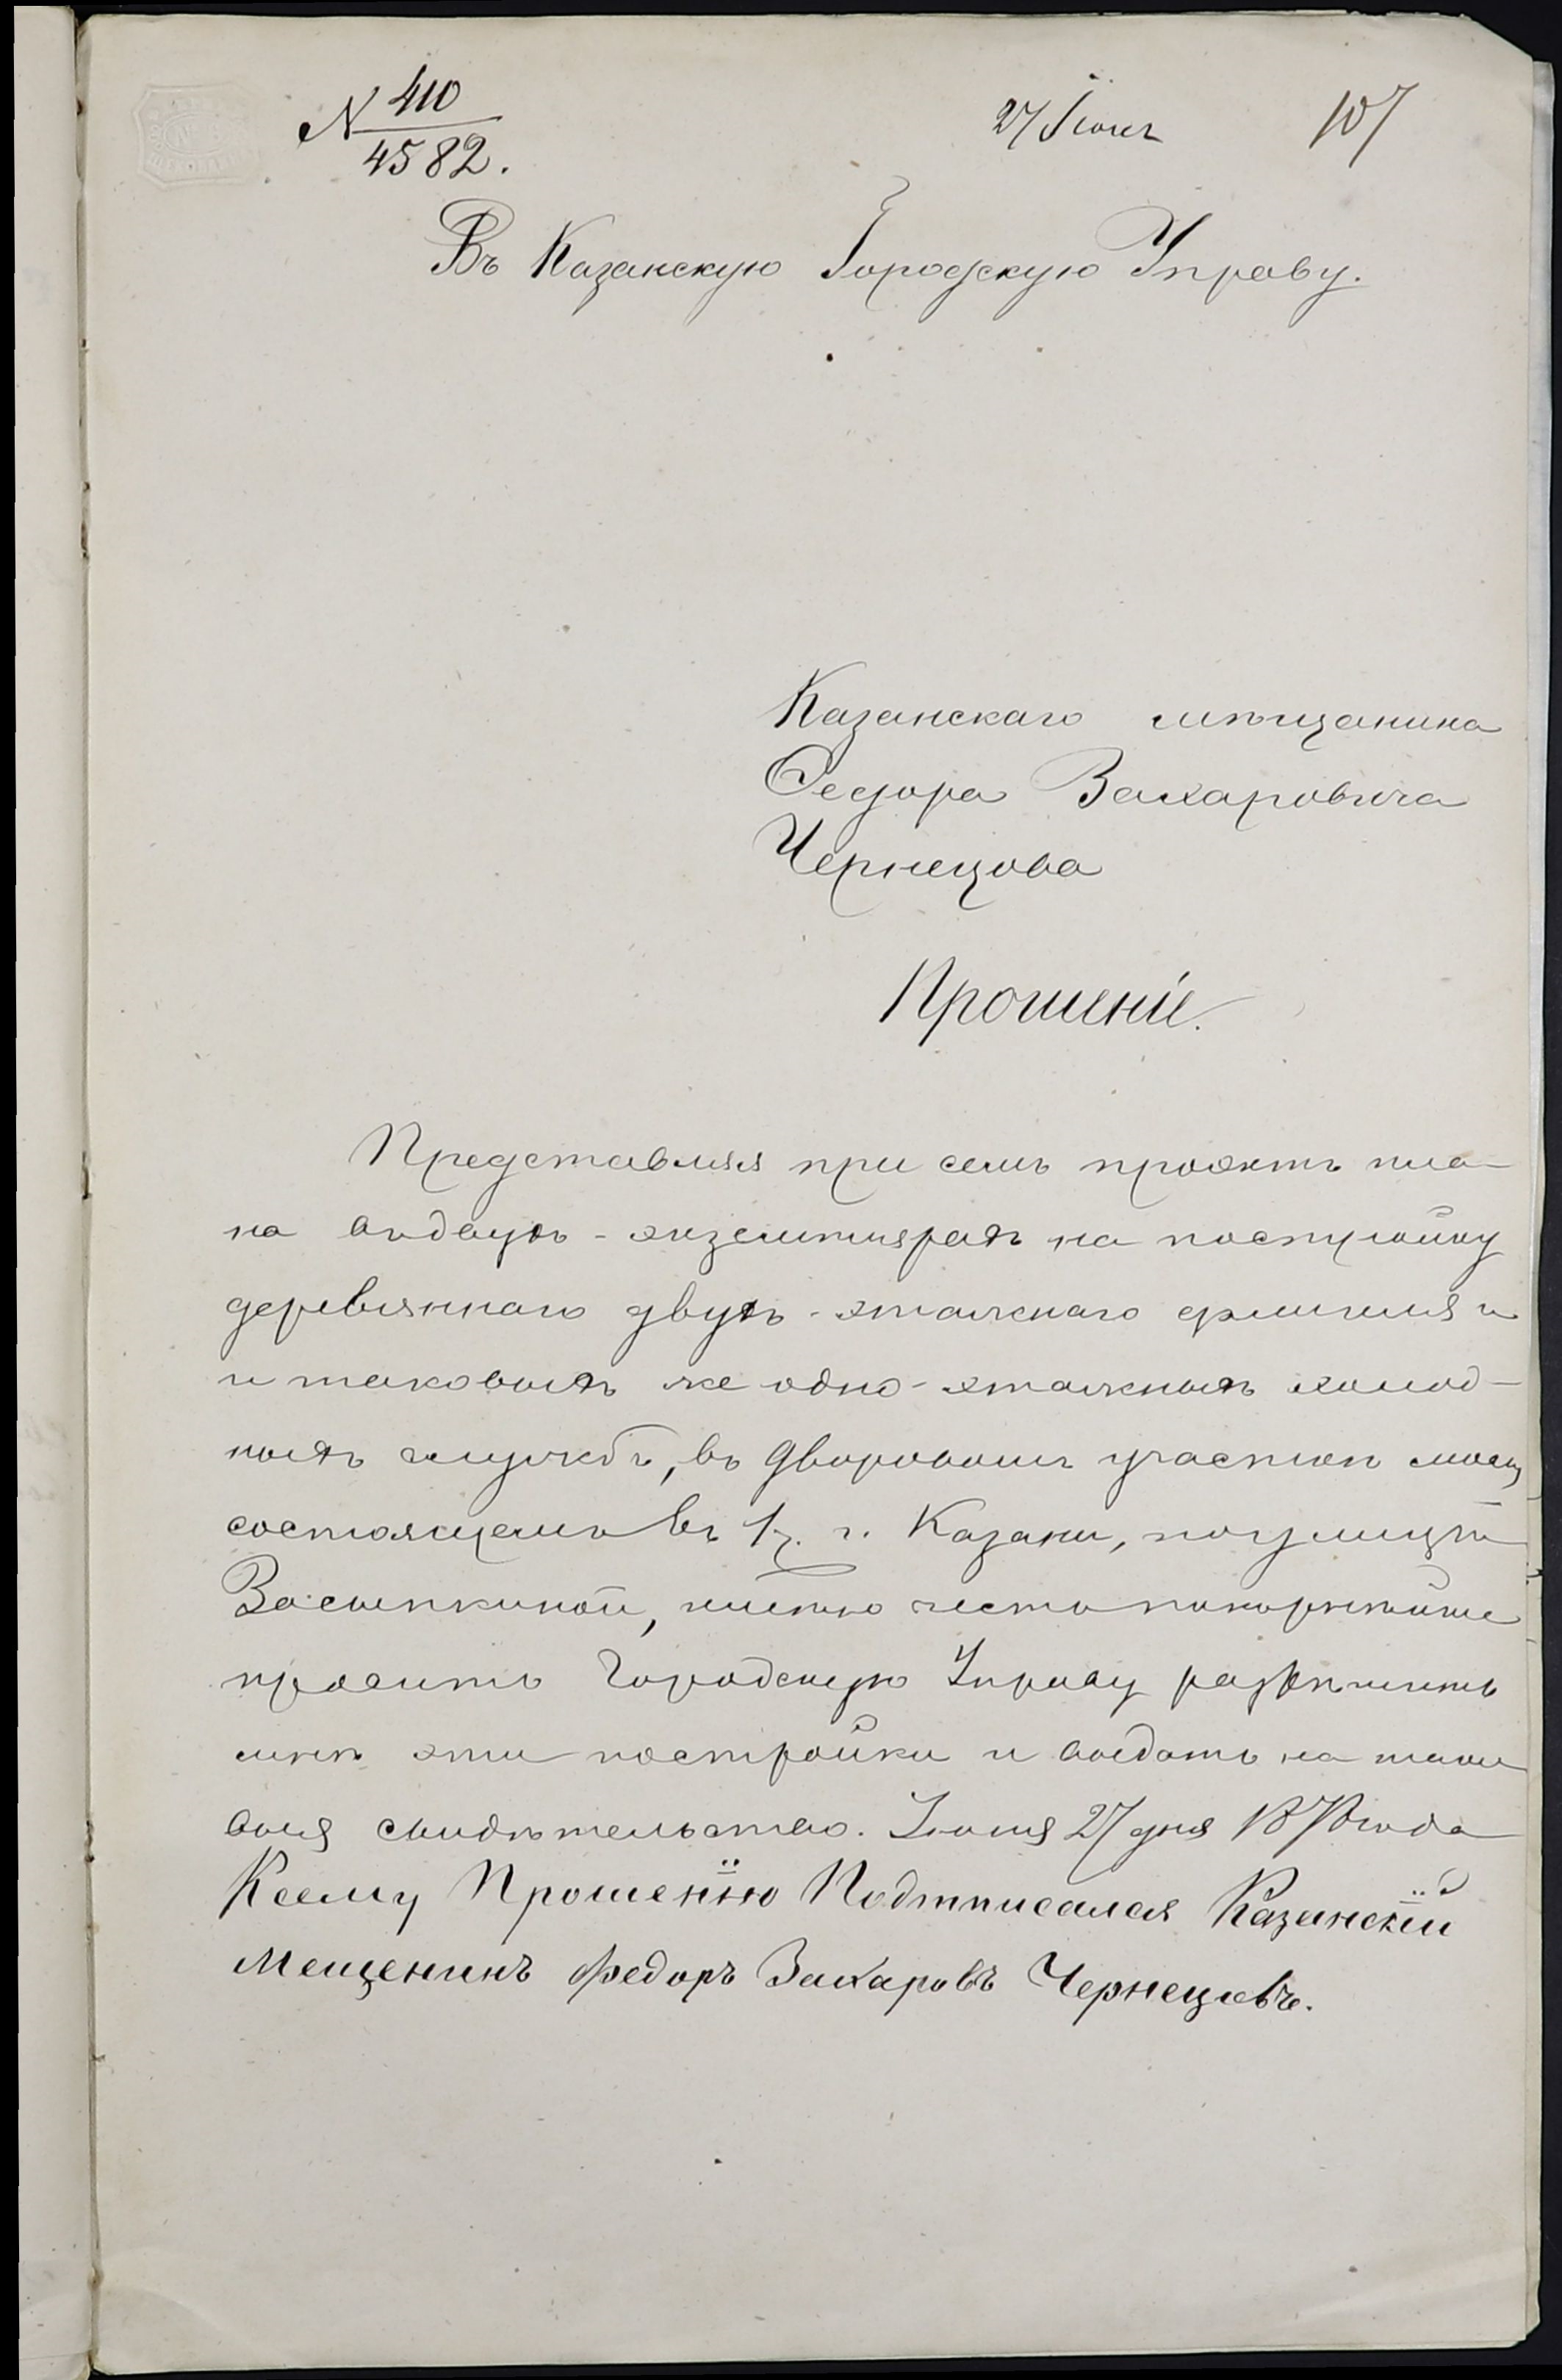 N 410
4582.
27 Іюня
107
Въ Казанскую Городскую Управу.
Казанскаго мѣщанина
Федора Захаровича
Чернецова
Прошеніе.
Представляя при семъ проэктъ пла-
на въ двухъ-экземплярахъ на постройку
деревяннаго двухъ-этажнаго флигеля и
и таковыхъ же одно-этажныхъ холод-
ныхъ службъ, въ дворовомъ участкѣ моемъ
состоящемъ въ 1 ч. г. Казани, по улицѣ
Засыпкиной, имѣю честь покорнѣйше
просить Городскую Управу разрѣшить
мнѣ эти постройки и выдать на тако
выя свидѣтельство. Іюня 27 дня 1878 года
К сему Прошенію Подтписался Казанскій
Мещенинъ Федоръ Захаровъ Чернецовъ.